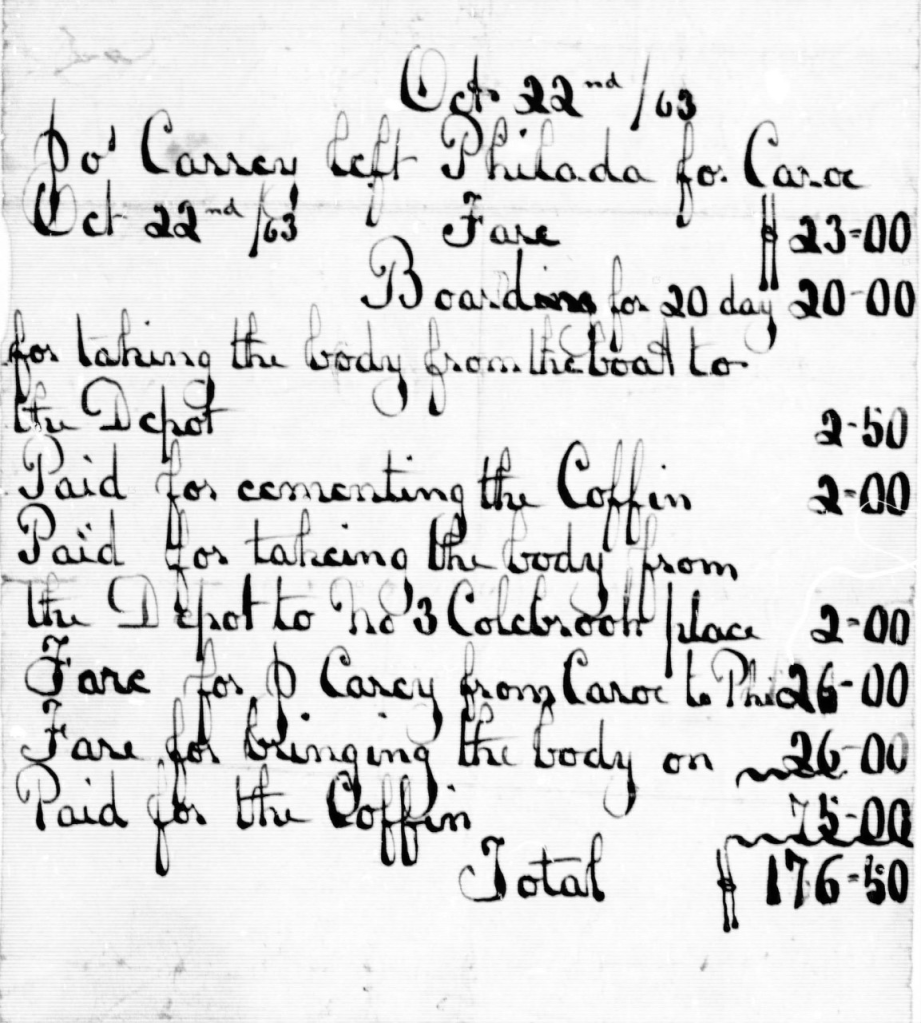 Oct 22nd/63
Po' Carrey left Philada for Caroe
Oct 22nd/63 Fare $23-00
Boarding for 20 day 20-00
for taking the body from the boat to
the Depot 2-50
Paid for cementing the Coffin 2-00
Paid for takeing the body from
the Depot to No 3 Colebrook place 2-00
Fare for P Carey from Caroe to Phi 26-00
Fare for bringing the body on 26-00
Paid for the Coffin 75-00
Total $176-50